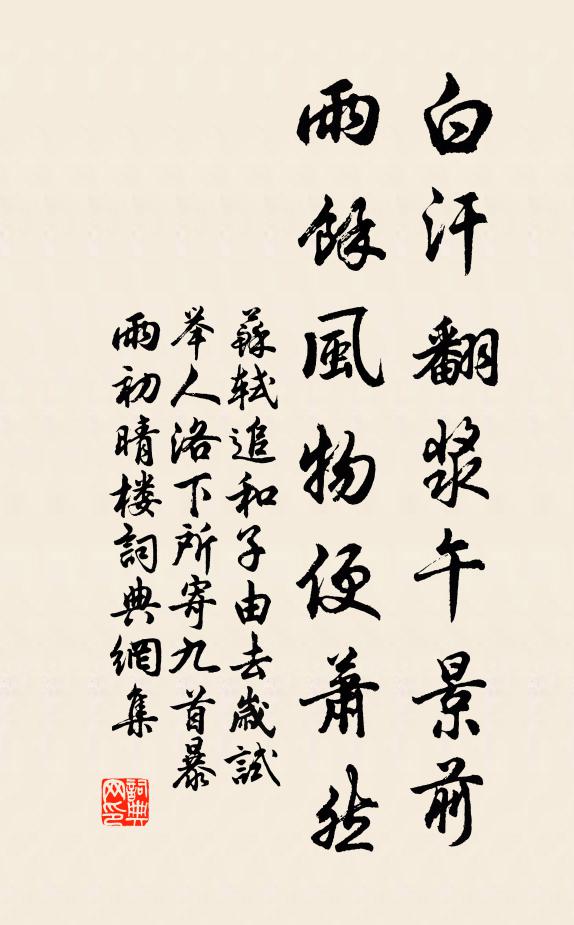 白汗翻漿午景前
雨餘風物便蕭然
蘇軾追和子由去歲試
举人洛下所寄九首暴
雨初晴楼詞典網集
詞典
网印